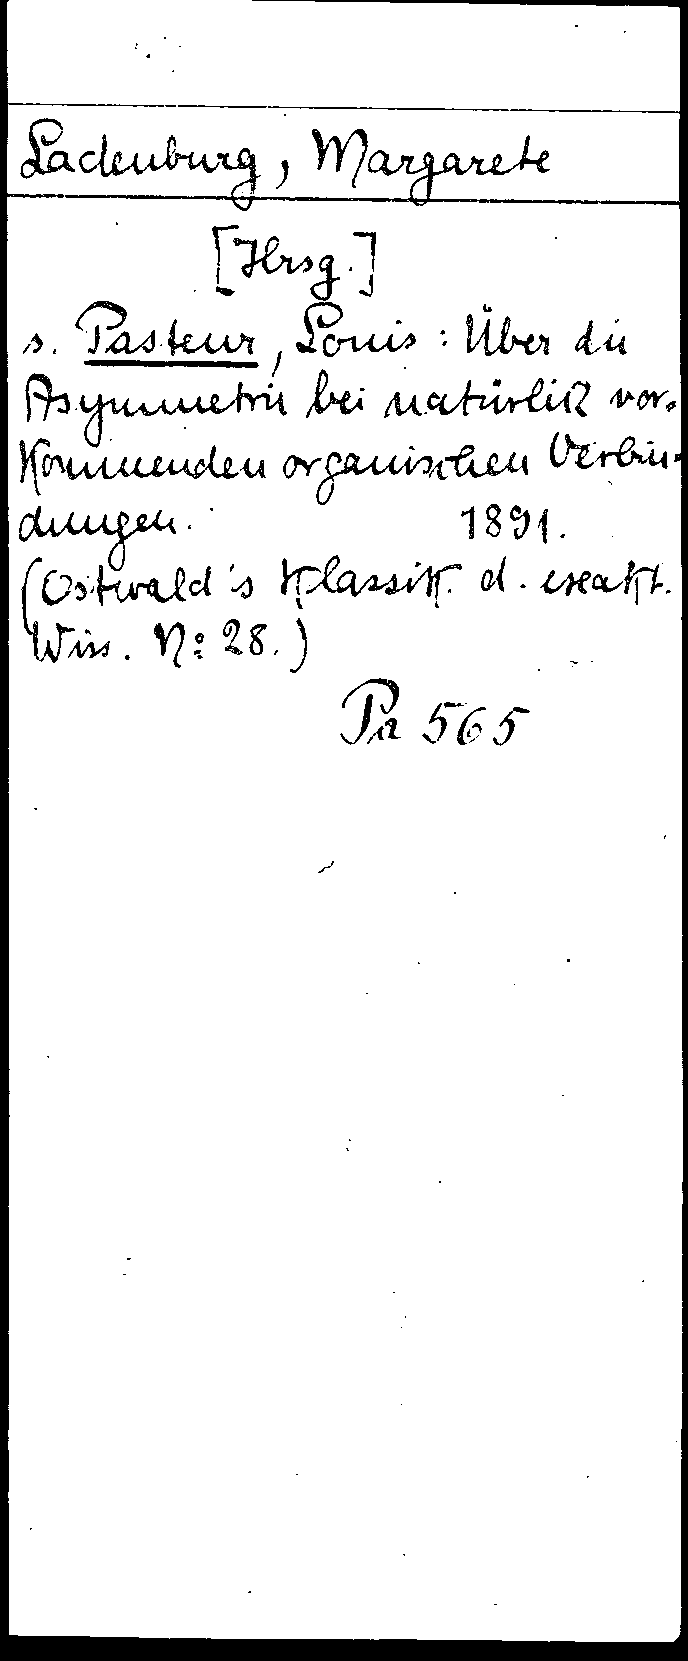 Ladenburg, Margarete
[Hrsg.]
s. Pasteur, Louis: Über die
Asymmetrie bei natürlich vor-
kommenden organischen Verbin-
dungen. 1891.
(Ostwald's Klassik. d. exakt.
Wiss. No 28.)
Pa 565